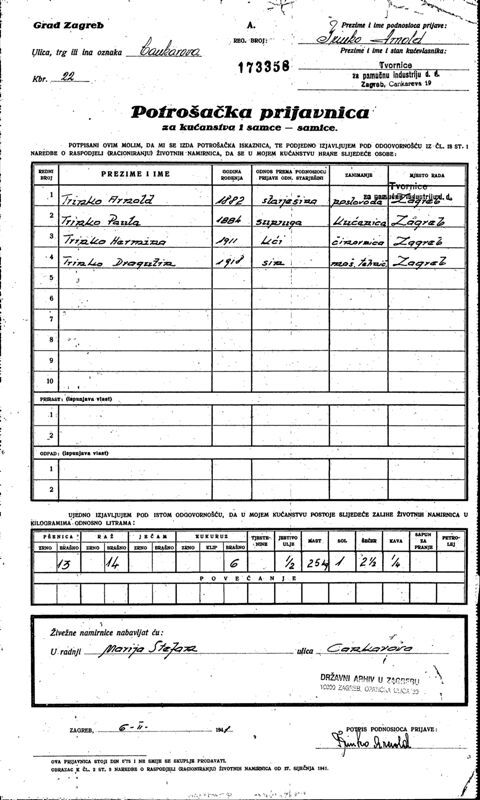 Grad Zagreb
A.
Prezime i ime podnosioca prijave:
REG. BROJ:
Trinko Arnold
Ulica, trg ili ina oznaka Cankarova
Prezime i ime i stan kućevlasnika:
173358
Tvornice
za pamučnu industriju d. d.
Zagreb, Cankareva 19
Kbr. 22
Potrošačka prijavnica
za kućanstva i samce — samice.
POTPISANI OVIM MOLIM, DA MI SE IZDA POTROŠAČKA ISKAZNICA, TE PODJEDNO IZJAVLJUJEM POD ODGOVORNOŠĆU IZ ČL. 15 ST. 1
NAREDBE O RASPODJELI (RACIONIRANJU) ŽIVOTNIH NAMIRNICA, DA SE U MOJEM KUĆANSTVU HRANE SLIJEDEĆE OSOBE:
REDNI BROJ PREZIME I IME GODINA ROĐENJA ODNOS PREMA PODNOSIOCU PRIJAVE ODN. STARJEŠINI ZANIMANJE MJESTO RADA
Tvornice
za pamučnu industriju d. d.
1 Trinko Arnold 1882 starješina poslovođa Zagreb
2 Trinko Paula 1884 supruga kućanica Zagreb
3 Trinko Hermina 1911 kći činovnica Zagreb
4 Trinko Dragutin 1918 sin Zagreb
5
6
7
8
9
10
PRIRAST: (ispunjava vlast)
1
2
OTPAD: (ispunjava vlast)
1
2
UJEDNO IZJAVLJUJEM POD ISTOM ODGOVORNOŠĆU, DA U MOJEM KUĆANSTVU POSTOJE SLIJEDEĆE ZALIHE ŽIVOTNIH NAMIRNICA U
KILOGRAMIMA ODNOSNO LITRAMA:
PŠENICA RAŽ JEČAM KUKURUZ TJESTENINE JESTIVO ULJE MAST SOL ŠEĆER KAVA SAPUN ZA PRANJE PETROLEJ
ZRNO BRAŠNO ZRNO BRAŠNO ZRNO BRAŠNO ZRNO KLIP BRAŠNO
13 14 6 ½ 25 kg 1 2½ ¼
POVEĆANJE
Živežne namirnice nabavljat ću:
U radnji Marija Stefan ulica Cankarova
DRŽAVNI ARHIV U ZAGREBU
10000 ZAGREB, OPATIČKA ULICA 29
ZAGREB, 6-II- 1941
POTPIS PODNOSIOCA PRIJAVE:
Trinko Arnold
OVA PRIJAVNICA STOJI DIN 0'75 I NE SMIJE SE SKUPLJE PRODAVATI.
OBRAZAC K ČL. 2 ST. 3 NAREDBE O RASPODJELI (RACIONIRANJU) ŽIVOTNIH NAMIRNICA OD 27. SIJEČNJA 1941.